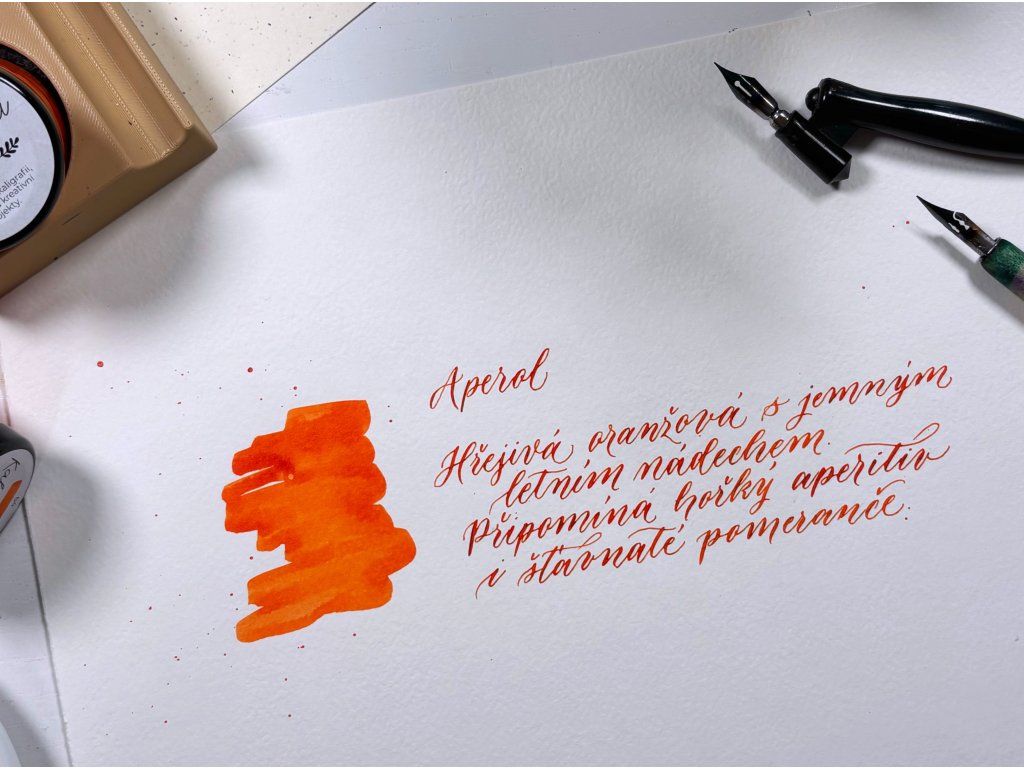 Aperol
Hřejivá oranžová s jemným
letním nádechem.
Připomíná hořký aperitiv
i šťavnaté pomeranče.
kaligrafii,
kreativní